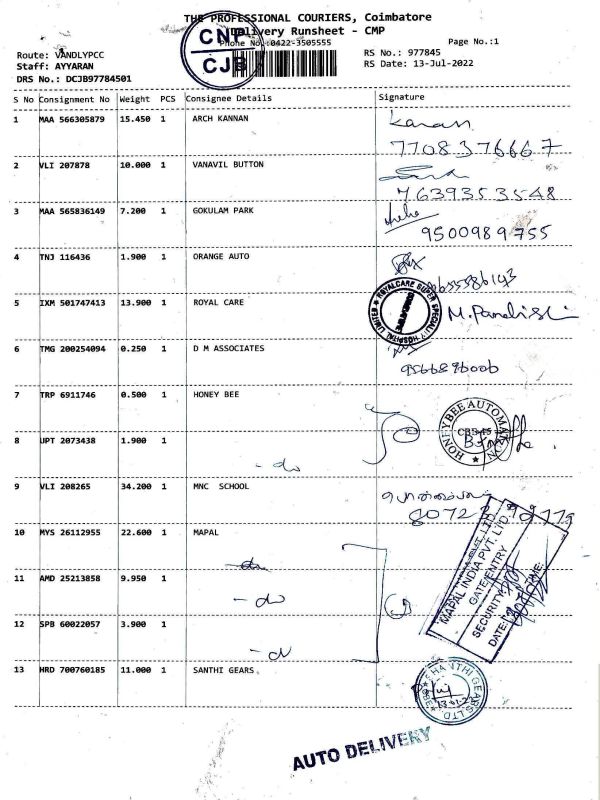 THE PROFESSIONAL COURIERS, Coimbatore
Delivery Runsheet - CMP
Phone No.:0422-3505555
Page No.:1
CNP
CJB
Route: VANDLYPCC
Staff: AYYARAN
DRS No.: DCJB97784501
RS No.: 977845
RS Date: 13-Jul-2022
S No Consignment No Weight PCS Consignee Details Signature
1 MAA 566305879 15.450 1 ARCH KANNAN
7708376667
2 VLI 207878 10.000 1 VANAVIL BUTTON
7639353548
3 MAA 565836149 7.200 1 GOKULAM PARK
9500989755
4 TNJ 116436 1.900 1 ORANGE AUTO
5 IXM 501747413 13.900 1 ROYAL CARE
ROYALCARE SUPER SPECIALITY HOSPITAL LIMITED
6 TMG 200254094 0.250 1 D M ASSOCIATES
7 TRP 6911746 0.500 1 HONEY BEE
HONEYBEE AUTOMATION
8 UPT 2073438 1.900 1 - do
9 VLI 208265 34.200 1 MNC SCHOOL
10 MYS 26112955 22.600 1 MAPAL
MAPAL INDIA PVT. LTD.
GATE ENTRY
SECURITY:
DATE: TIME:
11 AMD 25213858 9.950 1 - do
12 SPB 60022057 3.900 1 - do
13 HRD 700760185 11.000 1 SANTHI GEARS
SHANTHI GEARS LTD
AUTO DELIVERY